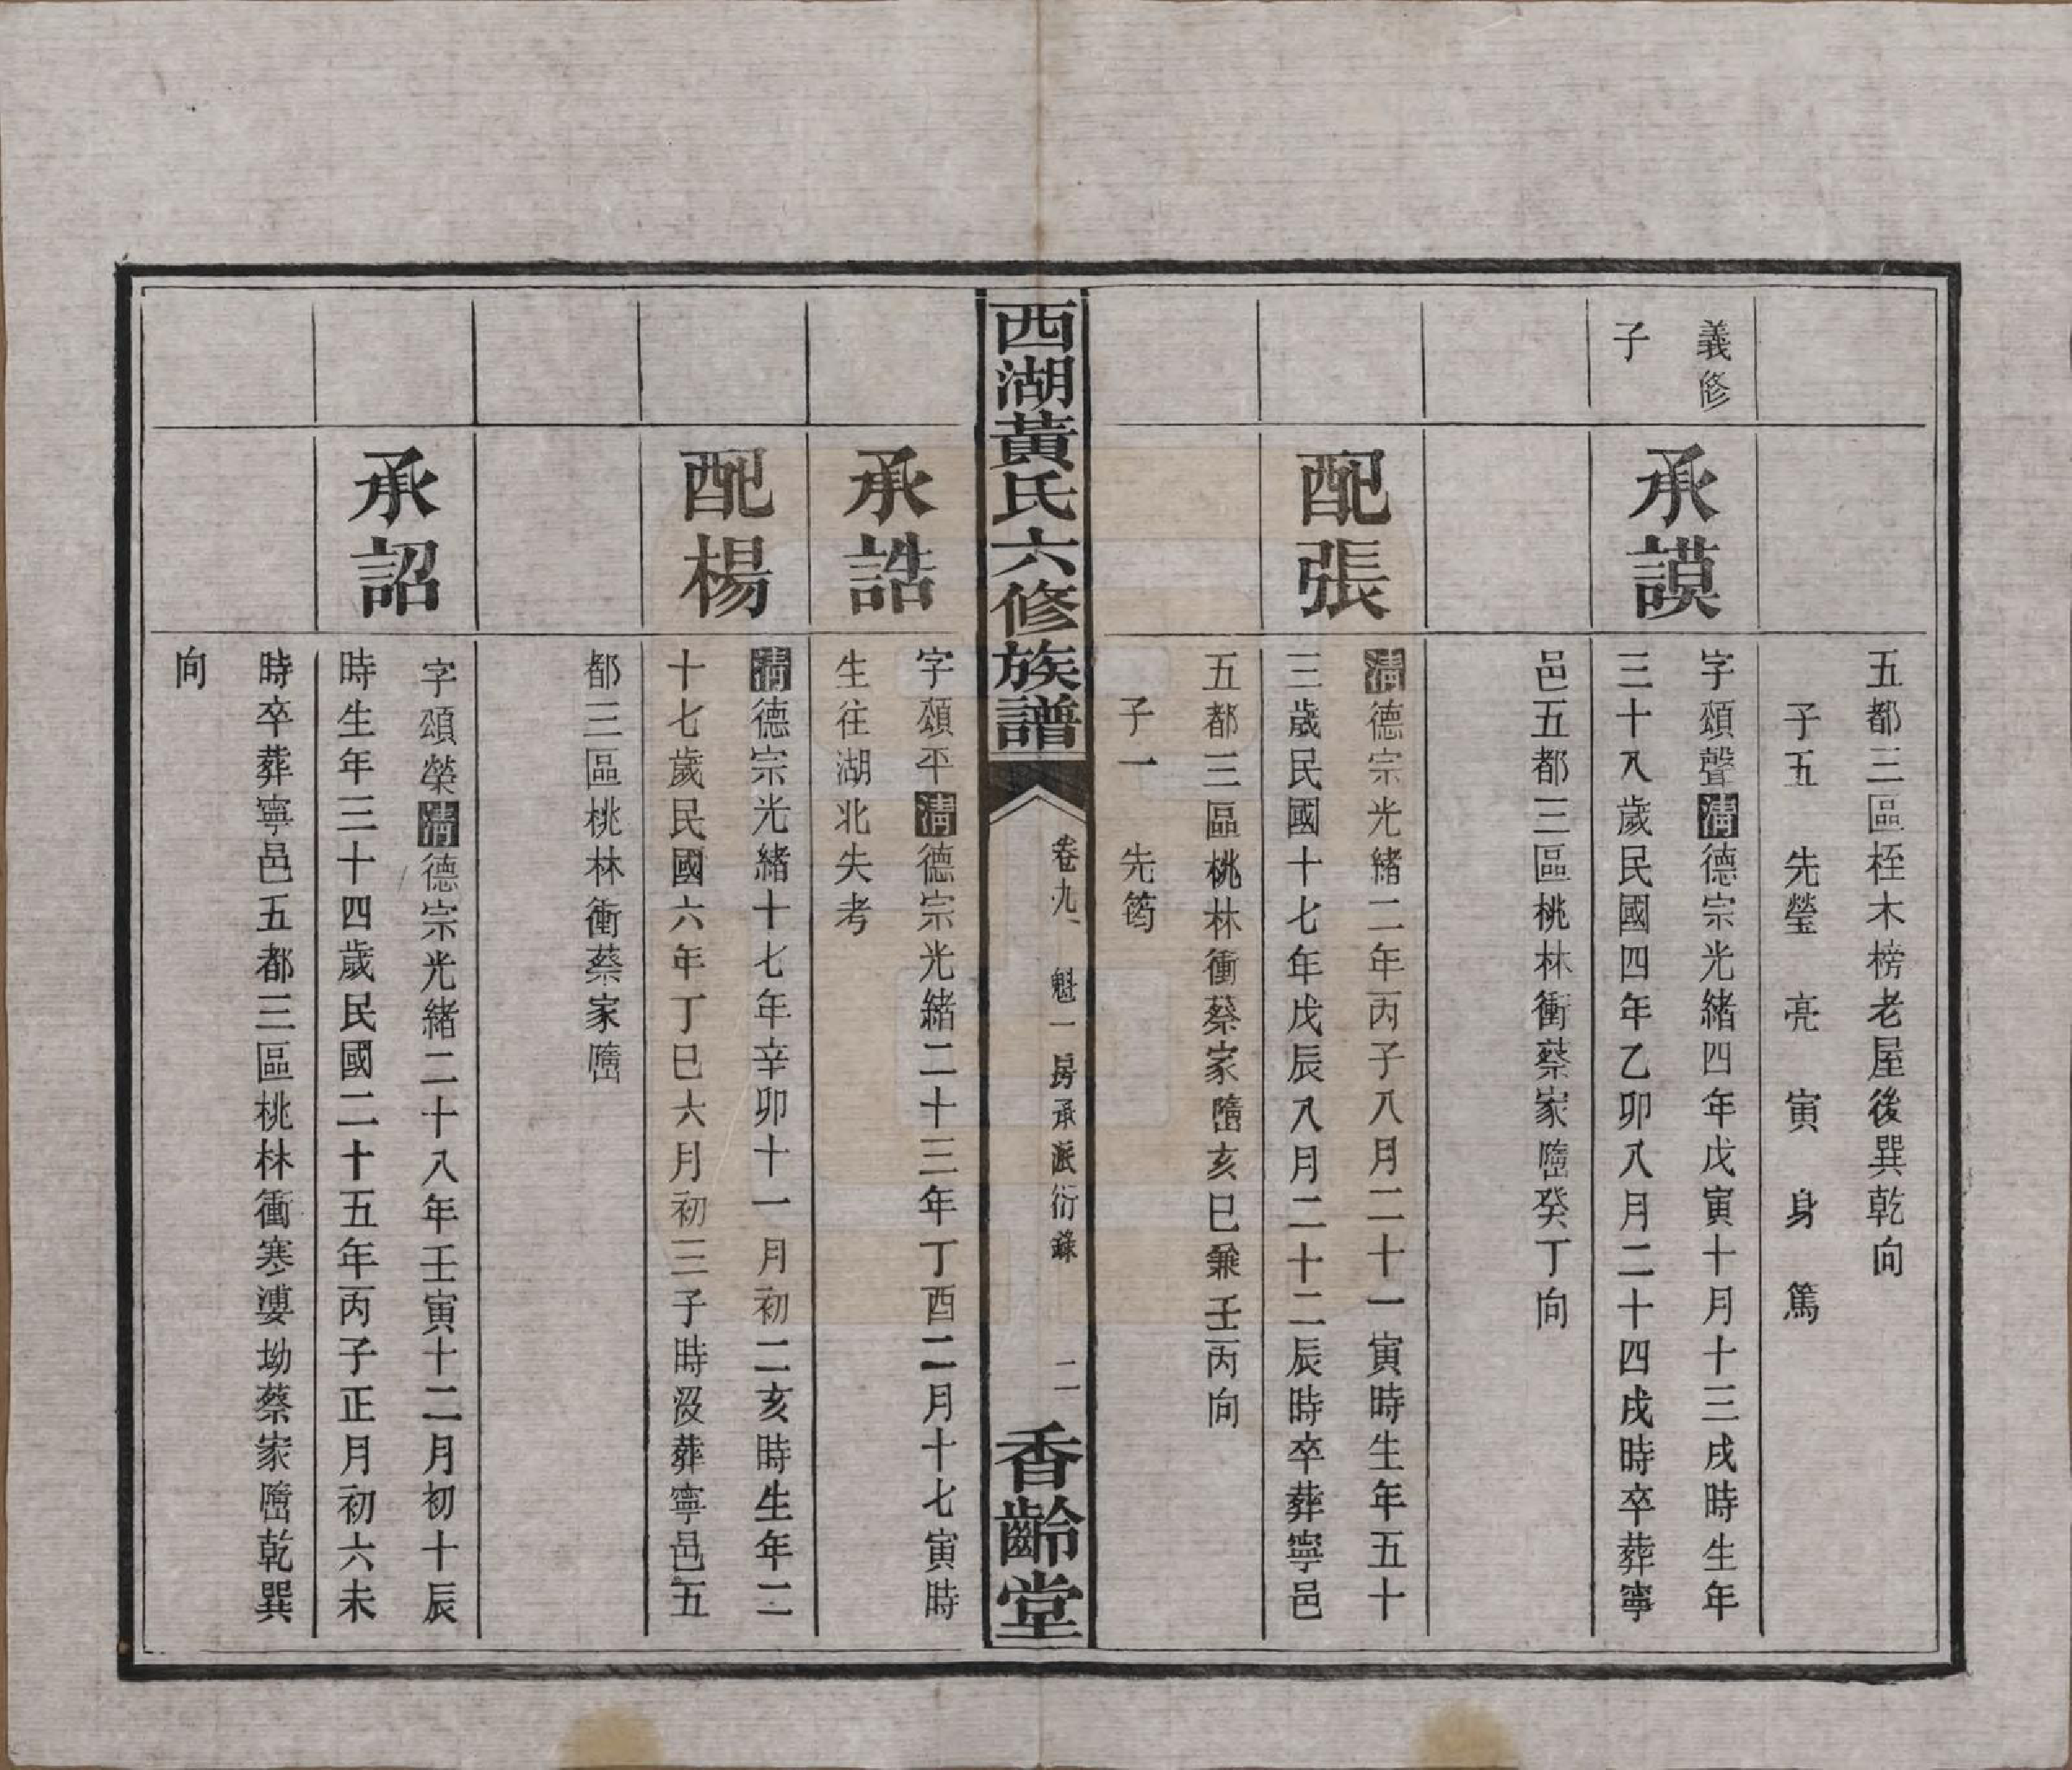 五都三區桎木榜老屋後巽乾向
子五　先瑩　亮　寅　身　篤
義修
子
承謨
字頌聲清德宗光緒四年戊寅十月十三戌時生年
三十八歲民國四年乙卯八月二十四戌時卒葬寧
邑五都三區桃林衝蔡家癸丁向
配張
清德宗光緒二年丙子八月二十一寅時生年五十
三歲民國十七年戊辰八月二十二辰時卒葬寧邑
五都三區桃林衝蔡家亥巳兼壬丙向
子一　先筠
西湖黃氏六修族譜
卷九　魁一房承派衍錄
二
香齡堂
承誥
字頌平清德宗光緒二十三年丁酉二月十七寅時
生往湖北失考
配楊
清德宗光緒十七年辛卯十一月初二亥時生年二
十七歲民國六年丁巳六月初三子時沒葬寧邑五
都三區桃林衝蔡家
承詔
字頌榮清德宗光緒二十八年壬寅十二月初十辰
時生年三十四歲民國二十五年丙子正月初六未
時卒葬寧邑五都三區桃林衝寒漊坳蔡家乾巽
向